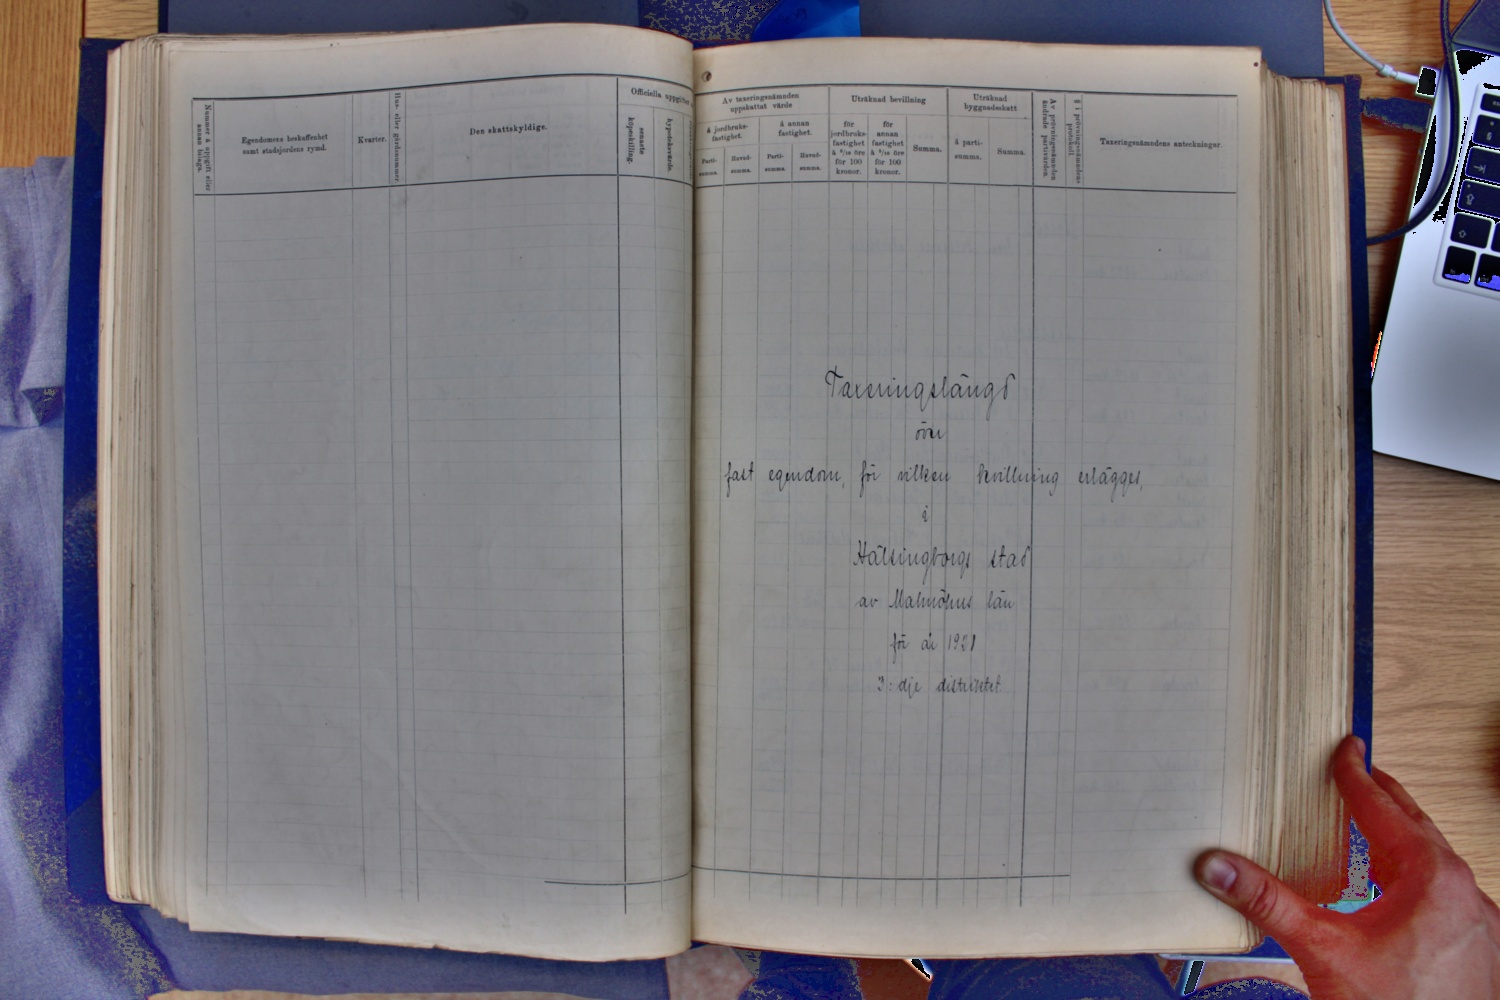 Nummer å uppgift eller annan bilaga.
Egendomens beskaffenhet
samt stadsjordens rymd.
Kvarter.
Hus- eller gårdsnummer
Den skattskyldige.
Officiella uppgifter
senaste
köpeskilling.
hypoteksvärde.
Av taxeringsnämnden
uppskattat värde
å jordbruks-
fastighet.
å annan
fastighet.
Parti-
summa.
Huvud-
summa.
Parti-
summa.
Huvud-
summa.
Uträknad bevillning
för
jordbruks-
fastighet
för 100
kronor.
för
annan
fastighet
för 100
kronor.
Summa.
Uträknad
byggnadsskatt
å parti-
summa.
Summa.
Av prövningsnämnden
ändrade partivärden.
§ i prövningsnämndens
protokoll.
Taxeringsnämndens anteckningar
Taxeringslängd
över
fast egendom, för vilken bevillning erlägges,
i
Hälsingborgs stad
av Malmöhus län
för år 1921
3:dje distriktet.